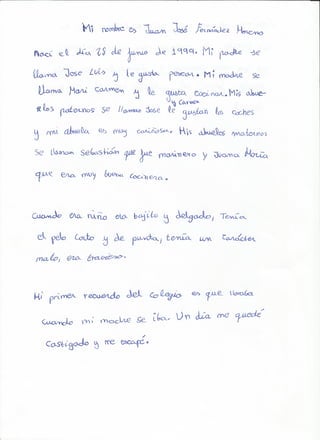 Mi nombre es Juan José Fernández Moreno
Naci el día 25 de junio de 1999. Mi padre se
llama Jose Luis y le gusta pescar. Mi madre se
llama Mari Carmen y le gusta cocinar. Mis abue-
los paternos se llaman Jose y Carmen le gustan los coches
y mi abuela es muy cariñosa. Mis abuelos maternos
se llaman Sebastián que fue marinero y Juana María
que era muy buena cocinera.
Cuando era niño era bajito y delgado, Tenía
el pelo corto y de punta, tenía un carácter
malo, era travieso.
Mi primer recuerdo del colegio es que lloraba
cuando mi madre se iba. Un día me quedé
castigado y me escapé.